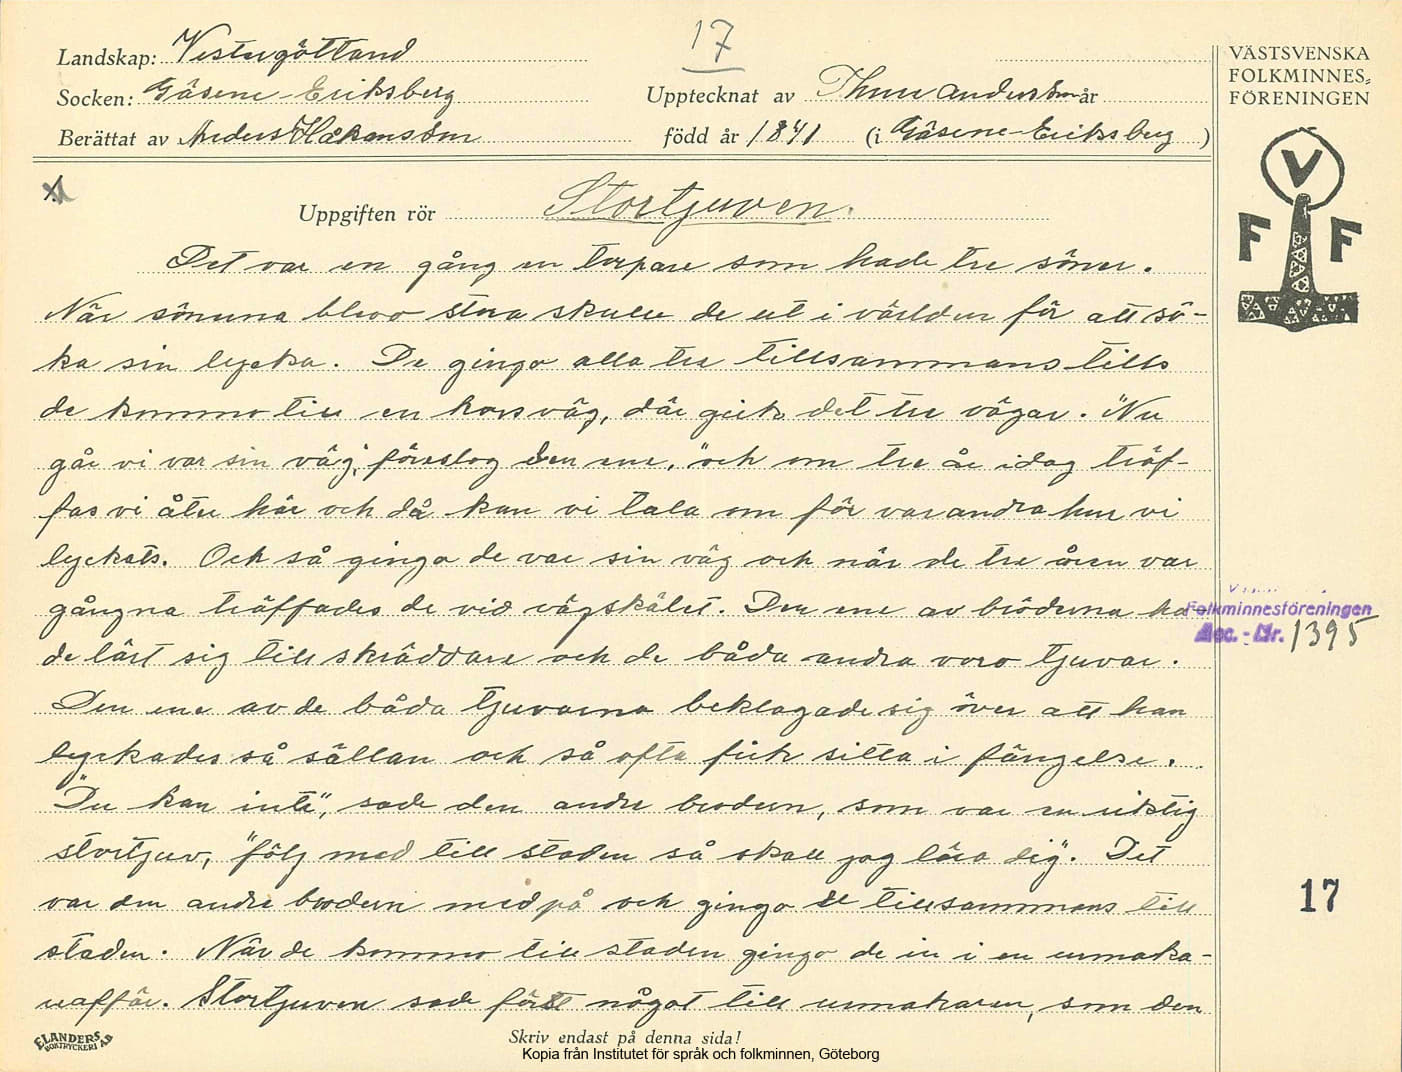 17
Landskap: Vestergötland
VÄSTSVENSKA
FOLKMINNES-
FÖRENINGEN
Socken: Gäsene-Eriksberg Upptecknat av Thure Andersson år
Berättat av Anders Håkansson född år 1841 (i Gäsene-Eriksberg )
V
F F
Uppgiften rör Stortjuven.
Det var en gång en torpare som hade tre söner.
När sönerna blevo stora skulle de ut i världen för att sö-
ka sin lycka. De gingo alla tre tillsammans tills
de kommo till en korsväg, där gick det tre vägar. "Nu
går vi var sin väg", föreslog den ene, "och om tre år idag träf-
fas vi åter här och då kan vi tala om för varandra hur vi
lyckats. Och så gingo de var sin väg och när de tre åren var
gångna träffades de vid vägskälet. Den ene av bröderna ha-
de lärt sig till skräddare och de båda andra voro tjuvar.
Folkminnesföreningen
Acc.-Nr. 1395
Den ene av de båda tjuvarna beklagade sig över att han
lyckades så sällan och så ofta fick sitta i fängelse.
"Du kan inte", sade den andre brodern, som var en riktig
stortjuv, "följ med till staden så skall jag lära dig". Det
var den andre brodern med på och gingo de tillsammans till
staden. När de kommo till staden gingo de in i en urmaka-
17
reaffär. Stortjuven sade först något till urmakaren, som den
ELANDERS
BOKTRYCKERI A.B
Skriv endast på denna sida!
Kopia från Institutet för språk och folkminnen, Göteborg